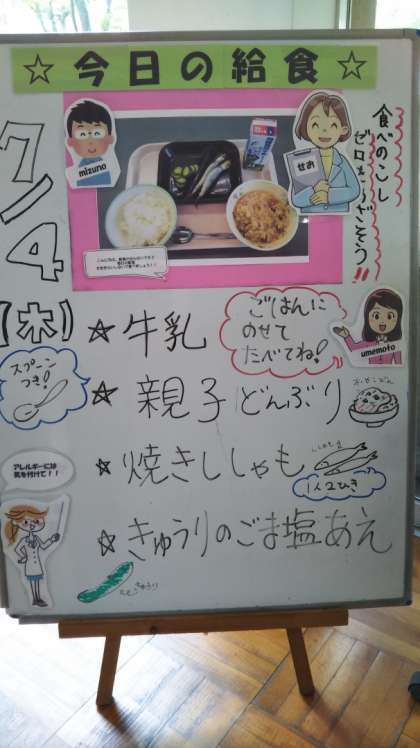 ☆今日の給食☆
7/4
(木)
mizuno
せお
食べのこし
ゼロをめざそう!!
☆牛乳
ごはんに
のせて
たべてね!
umemoto
スプーン
つき!
☆親子どんぶり
アレルギーには
気を付けて!!
☆焼きししゃも
ししゃも
1人2ひき
☆きゅうりのごま塩あえ
きゅうり